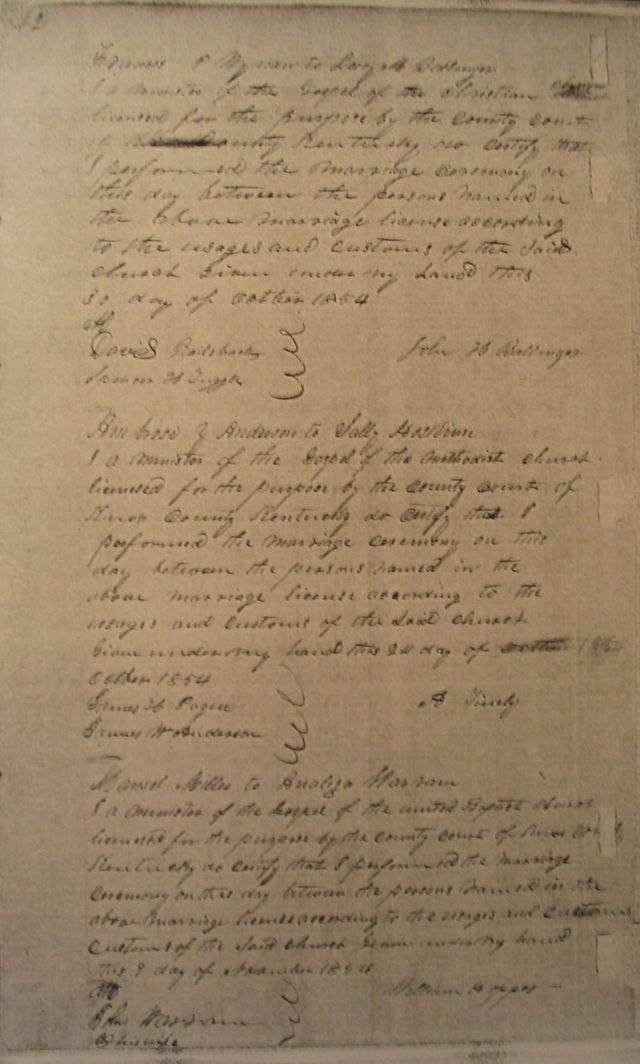 to Lucy M
I a Minister of the Gospel of the Christian
licensed for the purpose by the County Court
of County Kentucky do certify that
I performed the Marriage Ceremony on
this day between the persons named in
the above marriage license according
to the usages and customs of the said
church Given under my hand this
31 day of October 1854
David Railsback John H Bollinger
H Tuggle
Ambrose Y Anderson to Sally
I a Minister of the Gospel of the Methodist church
licensed for the purpose by the County Court of
Knox County Kentucky do certify that I
performed the Marriage Ceremony on this
day between the persons named in the
above marriage license according to the
usages and customs of the said church
Given under my hand this 24 day of
October 1854
James H Pogue
James W Anderson
Miller to Analiza
I a Minister of the Gospel of the united Baptist church
licensed for the purpose by the County Court of Knox Co
Kentucky do certify that I performed the Marriage
Ceremony on this day between the persons named in the
above marriage license according to the usages and customs
customs of the said church Given under my hand
this 9 day of November 1854
William Hopper
John